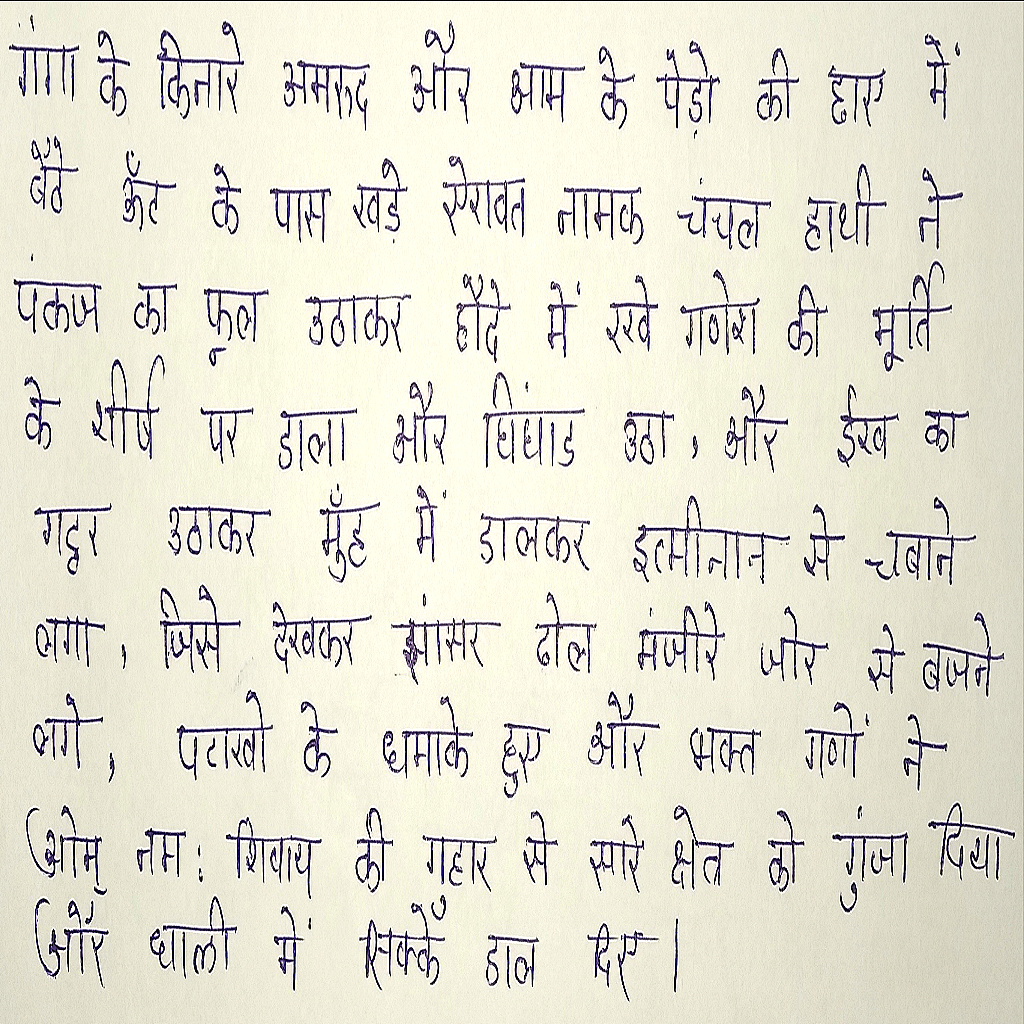 गंगा के किनारे अमरुद और आम के पेड़ो की छाए में
बैठे ऊँट के पास खड़े ऐरावत नामक चंचल हाथी ने
पंकज का फूल उठाकर हौदे में रखे गणेश की मूर्ति
के शीर्ष पर डाला और चिंघाड उठा, और ईख का
गट्ठर उठाकर मुँह में डालकर इत्मीनान से चबाने
लगा, जिसे देखकर झांसर ढोल मंजीरे जोर से बजने
लगे, पटाखो के धमाके हुए और भक्त गणों ने
ओम् नम: शिवाय की गुहार से सारे क्षेत्र को गुंजा दिया
और थाली में सिक्कें डाल दिए।